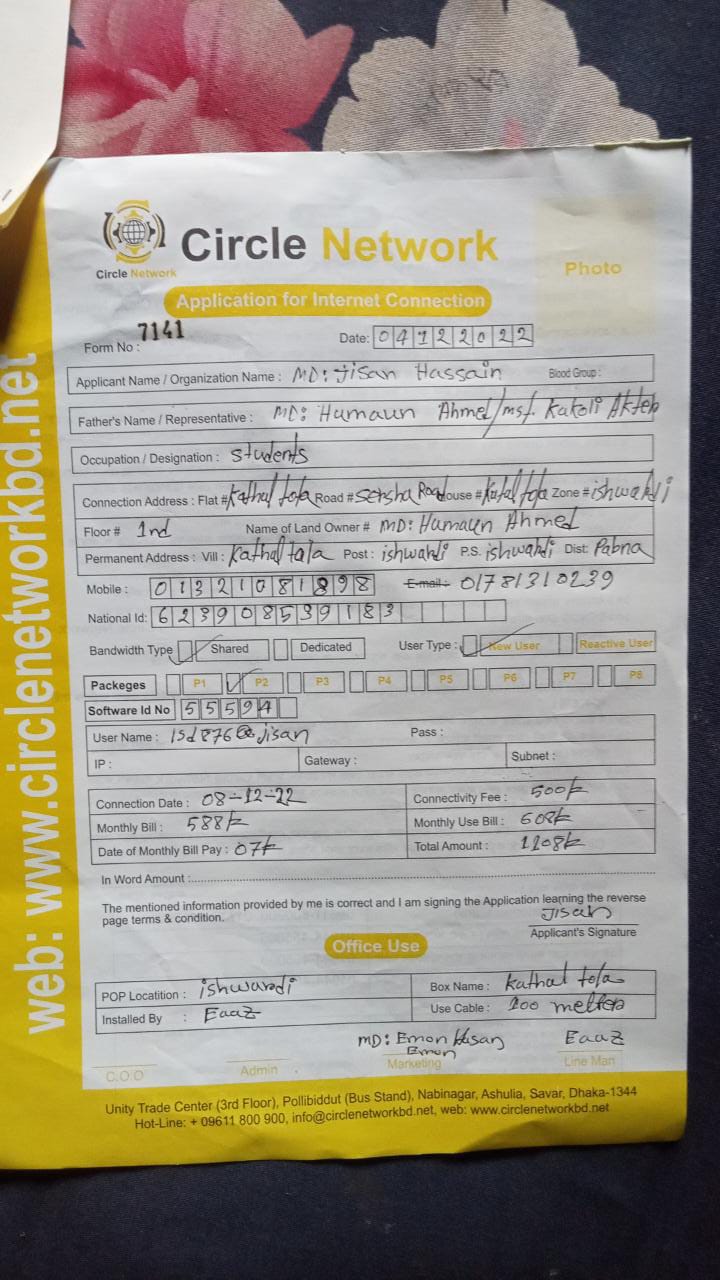 Circle Network
Circle Network
Photo
Application for Internet Connection
Form No : 7141
Date: 04122022
Applicant Name / Organization Name : MD: Jisan Hassain Blood Group :
Father's Name / Representative : MD: Humaun Ahmed/mst. Kakoli Akter
Occupation / Designation : students
Connection Address : Flat # Kathal tola Road # Sersha Road House # Kutal tola Zone # ishwardi
Floor # 1nd Name of Land Owner # MD: Humaun Ahmed
Permanent Address : Vill : Kathal tala Post : ishwardi P.S. ishwardi Dist: Pabna
Mobile : 01321081898 E-mail : 01781310239
National Id: 623908539183
Bandwidth Type Shared Dedicated User Type : New User Reactive User
Packeges P1 P2 P3 P4 P5 P6 P7 P8
Software Id No 55594
User Name : isd876@jisan Pass :
IP : Gateway : Subnet :
Connection Date : 08-12-22 Connectivity Fee : 500tk
Monthly Bill : 588tk Monthly Use Bill : 608tk
Date of Monthly Bill Pay : 07tk Total Amount : 1108tk
In Word Amount :
The mentioned information provided by me is correct and I am signing the Application learning the reverse
page terms & condition.
Jisan
Applicant's Signature
Office Use
POP Locatition : ishwardi Box Name : Kathal tola
Installed By : Eaaz Use Cable : 200 metter
MD: Emon Hasan Eaaz
Emon
C.O.O Admin Marketing Line Man
Unity Trade Center (3rd Floor), Pollibiddut (Bus Stand), Nabinagar, Ashulia, Savar, Dhaka-1344
Hot-Line: + 09611 800 900, info@circlenetworkbd.net, web: www.circlenetworkbd.net
web: www.circlenetworkbd.net